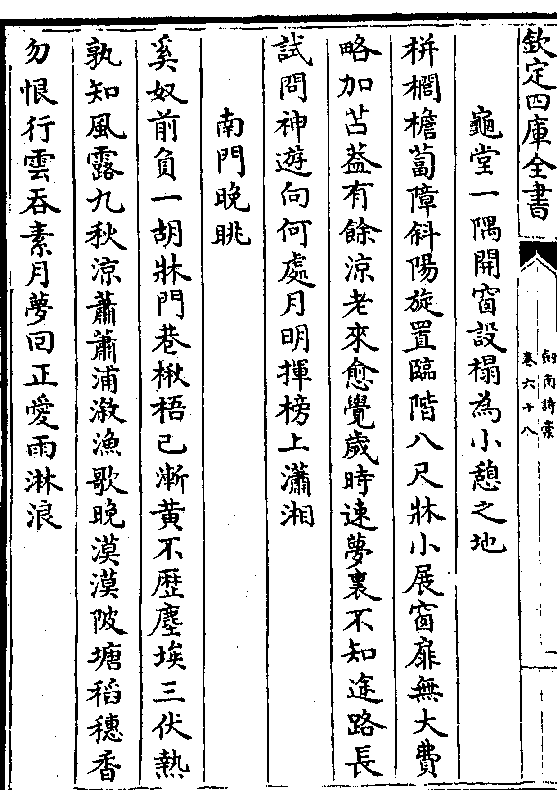 欽定四庫全書
劍南詩稾
卷六十八
龜堂一隅開窗設榻為小憩之地
栟櫚檐蔔障斜陽旋置臨階八尺牀小展窗扉無大費
略加苫葢有餘涼老來愈覺歲時速夢裏不知途路長
試問神遊向何處月明揮榜上瀟湘
南門晚眺
奚奴前負一胡牀門巷楸梧已漸黃不歴塵埃三伏熱
孰知風露九秋涼蕭蕭浦漵漁歌晚漠漠陂塘稻穗香
勿恨行雲吞素月夢回正愛雨淋浪